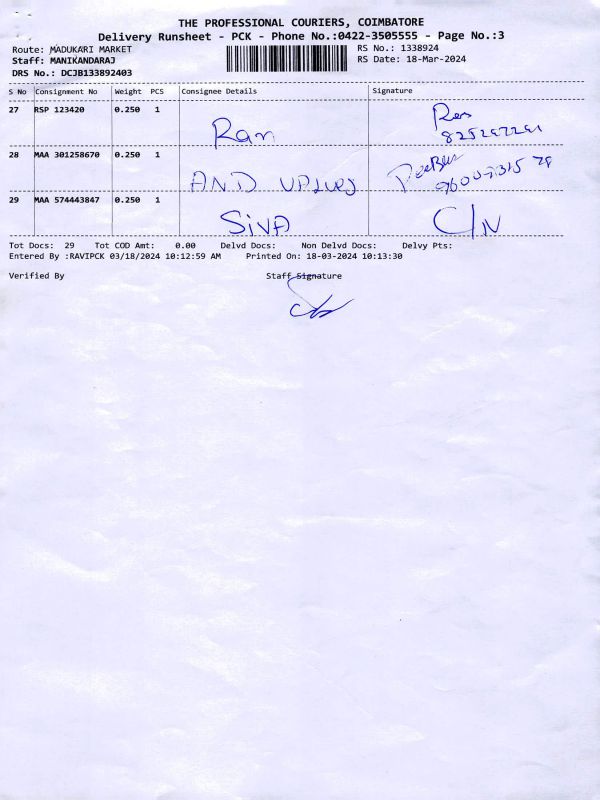 THE PROFESSIONAL COURIERS, COIMBATORE
Delivery Runsheet - PCK - Phone No.:0422-3505555 - Page No.:3
Route: MADUKARI MARKET RS No.: 1338924
Staff: MANIKANDARAJ RS Date: 18-Mar-2024
DRS No.: DCJB133892403
S No Consignment No Weight PCS Consignee Details Signature
27 RSP 123420 0.250 1 Ram
28 MAA 301258670 0.250 1 AND VALUES
29 MAA 574443847 0.250 1 SIVA C/N
Tot Docs: 29 Tot COD Amt: 0.00 Delvd Docs: Non Delvd Docs: Delvy Pts:
Entered By :RAVIPCK 03/18/2024 10:12:59 AM Printed On: 18-03-2024 10:13:30
Verified By Staff Signature